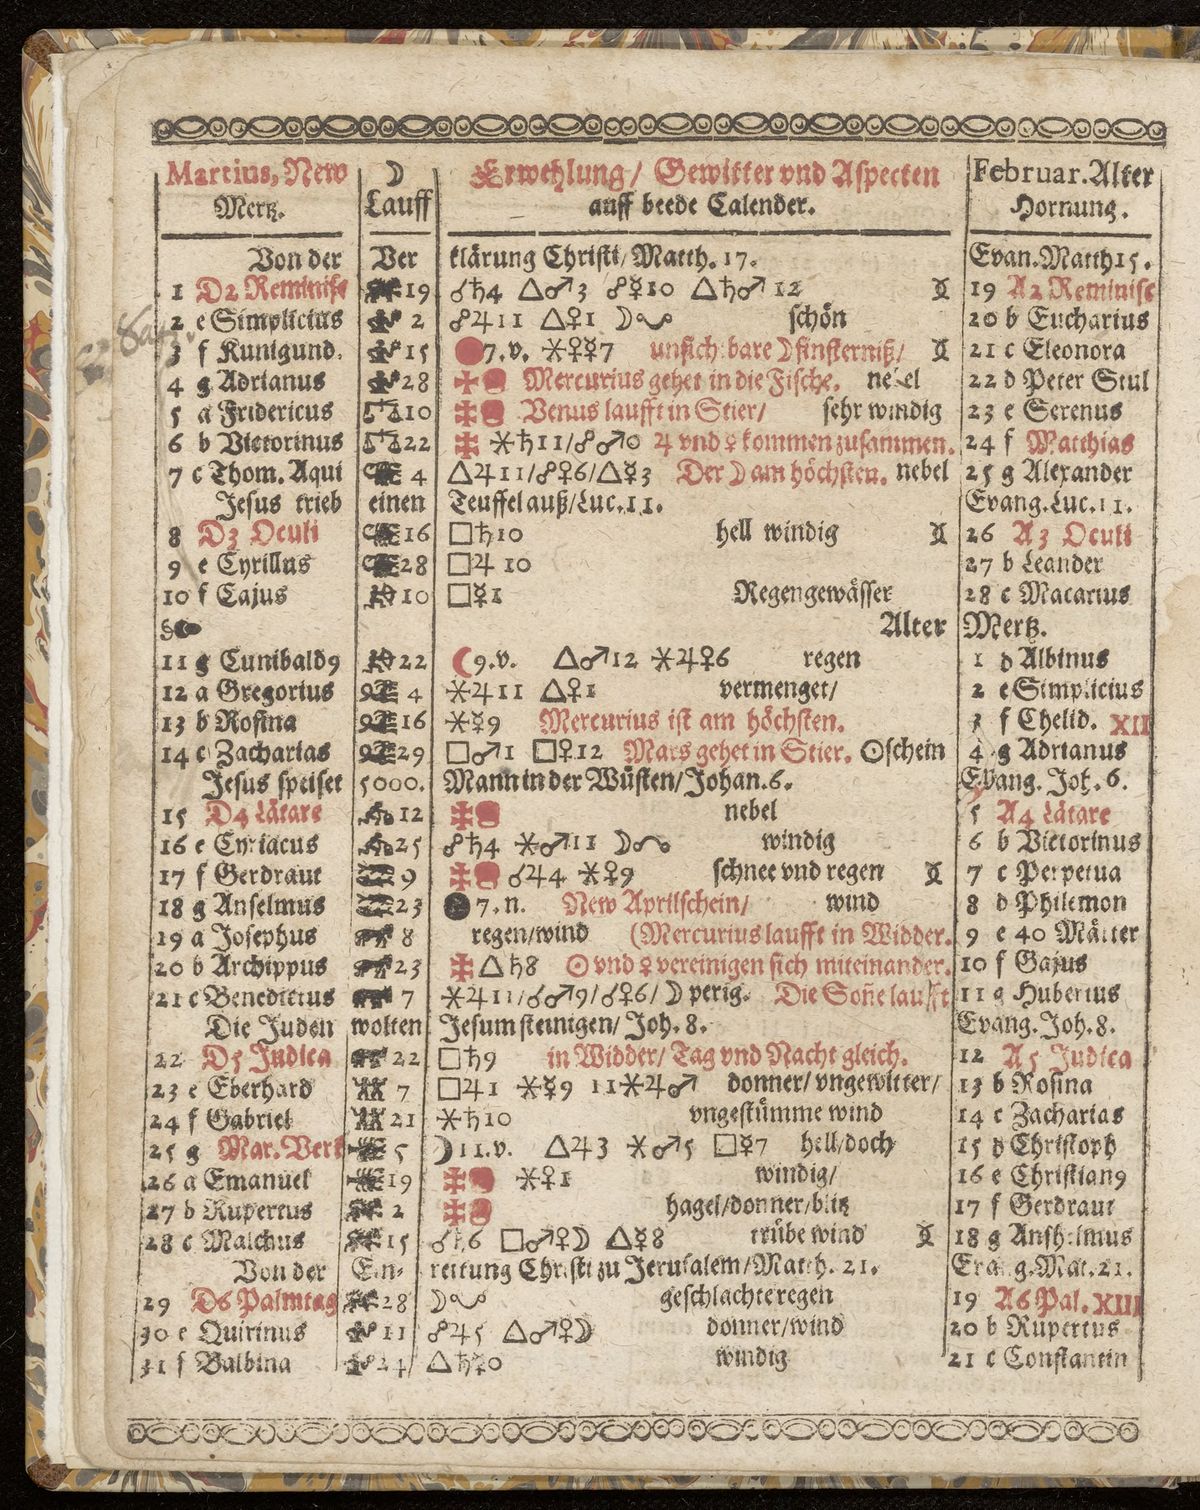 Martius, New ☽ Erwehlung/ Gewitter vnd Aspecten Februar. Alter
Mertz. Lauff auff beede Calender. Hornung.
Von der Ver klärung Christi/ Matth. 17. Evan. Matth 15.
1 D2 Reminisc 19 ☌♄4 △♂3 ☍☿10 △♄♂12 19 A2 Reminisc
2 e Simplicius 2 ☍♃11 △♀1 ☽☋ schön 20 b Eucharius
3 f Kunigund. 15 7.v. ⚹♀☿7 unsichtbare ☽ finsterniß/ 21 c Eleonora
4 g Adrianus 28 Mercurius gehet in die Fische. nebel 22 d Peter Stul
5 a Fridericus ♎10 Venus laufft in Stier/ sehr windig 23 e Serenus
6 b Victorinus ♎22 ⚹♄11/☍♂0 ♃ vnd ♀ kommen zusammen. 24 f Matthias
7 c Thom. Aqui 4 △♃11/☍♀6/△☿3 Der ☽ am höchsten. nebel 25 g Alexander
Jesus trieb einen Teuffel auß/ Luc. 11. Evang. Luc. 11.
8 D3 Oculi 16 □♄10 hell windig 26 A3 Oculi
9 e Cyrillus 28 □♃ 10 27 b Leander
10 f Cajus 10 □☿1 Regengewässer 28 c Macarius
Alter Mertz.
11 g Cunibald9 22 ☾9.v. △♂12 ⚹♃♀6 regen 1 d Albinus
12 a Gregorius 4 ⚹♃11 △♀1 vermenget/ 2 e Simplicius
13 b Rosina 16 ⚹☿9 Mercurius ist am höchsten. 3 f Chelid. XII
14 c Zacharias 29 □♂1 □♀12 Mars gehet in Stier. ☉schein 4 g Adrianus
Jesus speiset 5000. Mann in der Wüsten/ Johan. 6. Evang. Joh. 6.
15 D4 Lätare 12 nebel 5 A4 Lätare
16 e Cyriacus 25 ☍♄4 ⚹♂11 ☽☊ windig 6 b Victorinus
17 f Gerdraut 9 ☌♃4 ⚹♀9 schnee vnd regen 7 c Perpetua
18 g Anselmus 23 ●7.n. New Aprilschein/ wind 8 d Philemon
19 a Josephus 8 regen/wind (Mercurius laufft in Widder. 9 e 40 Märter
20 b Archippus 23 △♄8 ☉ vnd ♀ vereinigen sich miteinander. 10 f Gajus
21 c Benedictus 7 ⚹♃11/☌♂9/☌♀6/☽ perig. Die Sonne laufft 11 g Hubertus
Die Juden wolten Jesum steinigen/ Joh. 8. Evang. Joh. 8.
22 D5 Judica 22 □♄9 in Widder/ Tag vnd Nacht gleich. 12 A5 Judica
23 e Eberhard 7 □♃1 ⚹☿9 11⚹♃♂ donner/ vngewitter/ 13 b Rosina
24 f Gabriel 21 ⚹♄10 vngestümme wind 14 c Zacharias
25 g Mar. Verk 5 ☽11.v. △♃3 ⚹♂5 □☿7 hell/doch 15 d Christoph
26 a Emanuel 19 ⚹♀1 windig/ 16 e Christian9
27 b Rupertus 2 hagel/donner/blitz 17 f Gerdraut
28 c Malchus 15 ☌♄6 □♂♀☽ △☿8 trübe wind 18 g Anshelmus
Von der Ein- reitung Christi zu Jerusalem/Matth. 21. Evang. Mat. 21.
29 D6 Palmtag 28 ☽☋ geschlachte regen 19 A6 Pal. XIII
30 e Quirinus 11 ☍♃5 △♂♀☽ donner/wind 20 b Rupertus
31 f Balbina 24 △♄☿0 windig 21 c Constantin